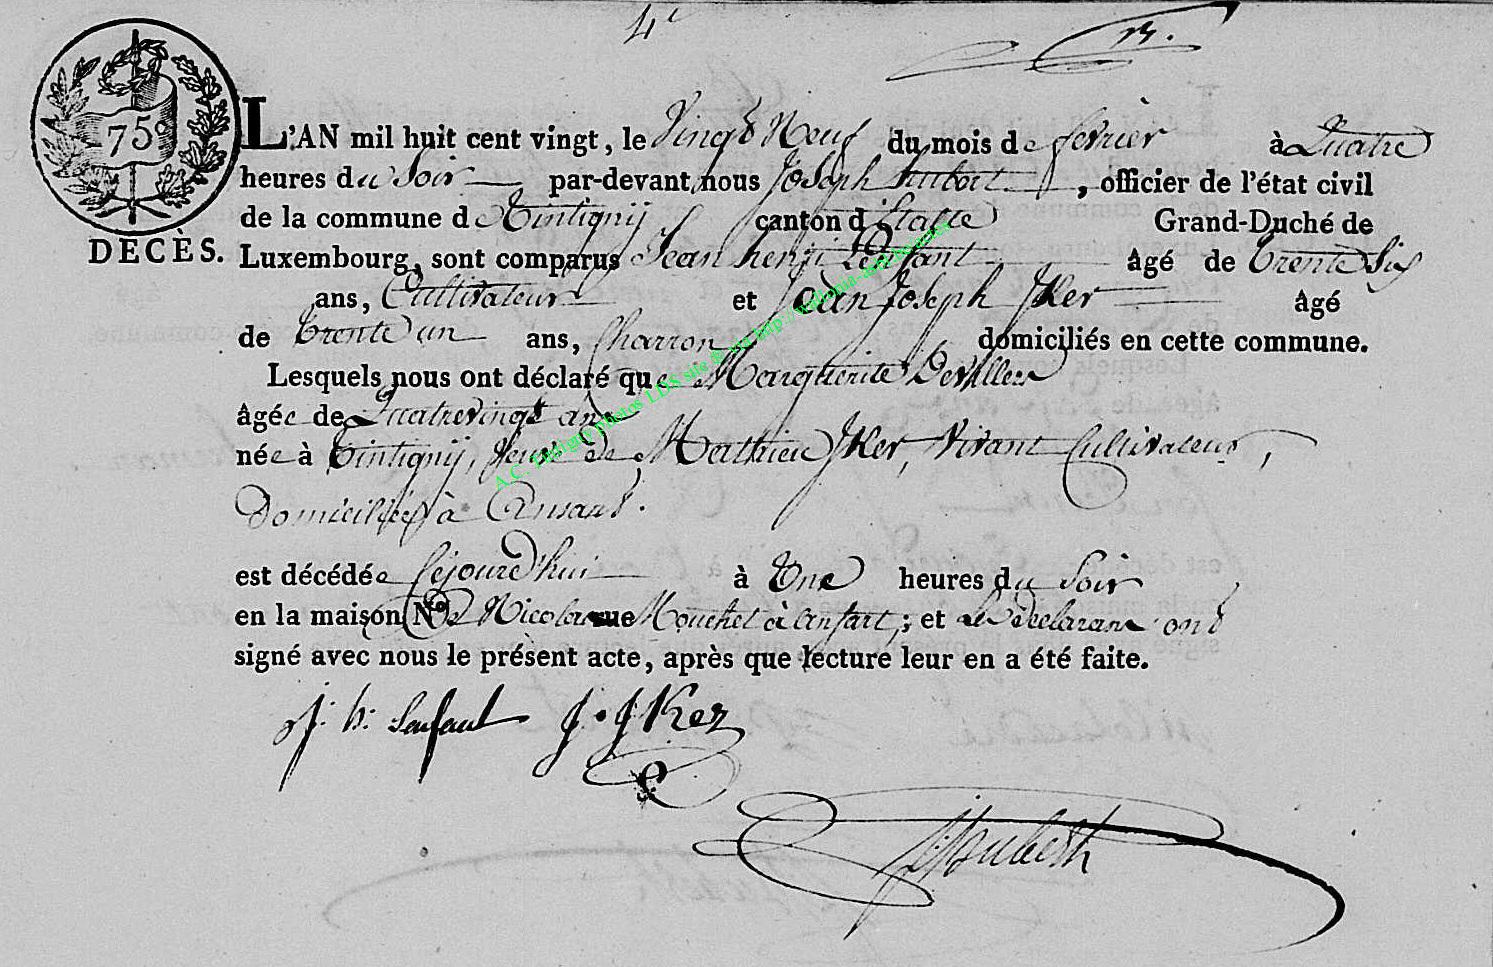 4e
13.
75c
L'AN mil huit cent vingt, le Vingt Neuf du mois de fevrier à Quatre
heures du Soir par-devant nous Joseph hubert, officier de l'état civil
de la commune de Tintigny canton d'Etalle Grand-Duché de
DECÈS. Luxembourg, sont comparus Jean henri Lenfant âgé de trente Six
ans, Cultivateur et Jean Joseph JKer âgé
de trente un ans, Charron domiciliés en cette commune.
Lesquels nous ont déclaré que Marguerite Deviller
âgée de Quatrevingt ans
née à tintigny, Veuve de Mathieu JKer, Vivant Cultivateur,
Domiciliée à Ansart.
est décédée cejourd'hui à Une heures du Soir
en la maison No de Nicolas rue Mouchet à ansart, ; et les declarans ont
signé avec nous le présent acte, après que lecture leur en a été faite.
J. h. Lenfant J. J Ker
J Hubert
A.C. Tintigny photos LDS site & via http://wallonia-asbl.